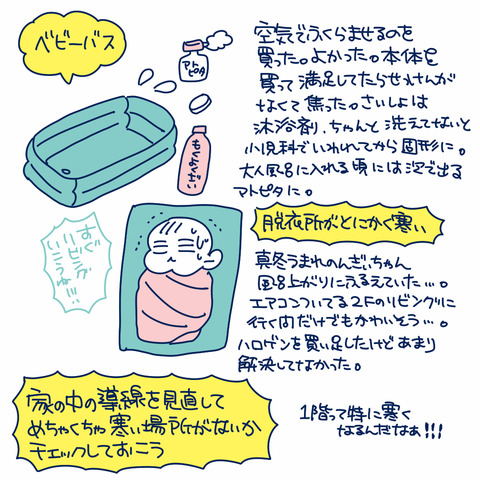 ベビーバス
アトピタ
もくよくざい
空気でふくらませるのを
買った。よかった。本体を
買って満足してたらせっけんが
なくて焦った。さいしょは
沐浴剤、ちゃんと洗えてないと
小児科でいわれてから固形に。
大人風呂に入れる頃には泡で出る
アトピタに。
脱衣所がとにかく寒い
すぐ
リビング
いこうね!!!
真冬うまれのんぎぃちゃん
風呂上がりにふるえていた…。
エアコンついてる2Fのリビングに
行く間だけでもかわいそう…。
ハロゲンを買い足したけどあまり
解決してなかった。
家の中の導線を見直して
めちゃくちゃ寒い場所がないか
チェックしておこう
1階って特に寒く
なるんだなぁ!!!